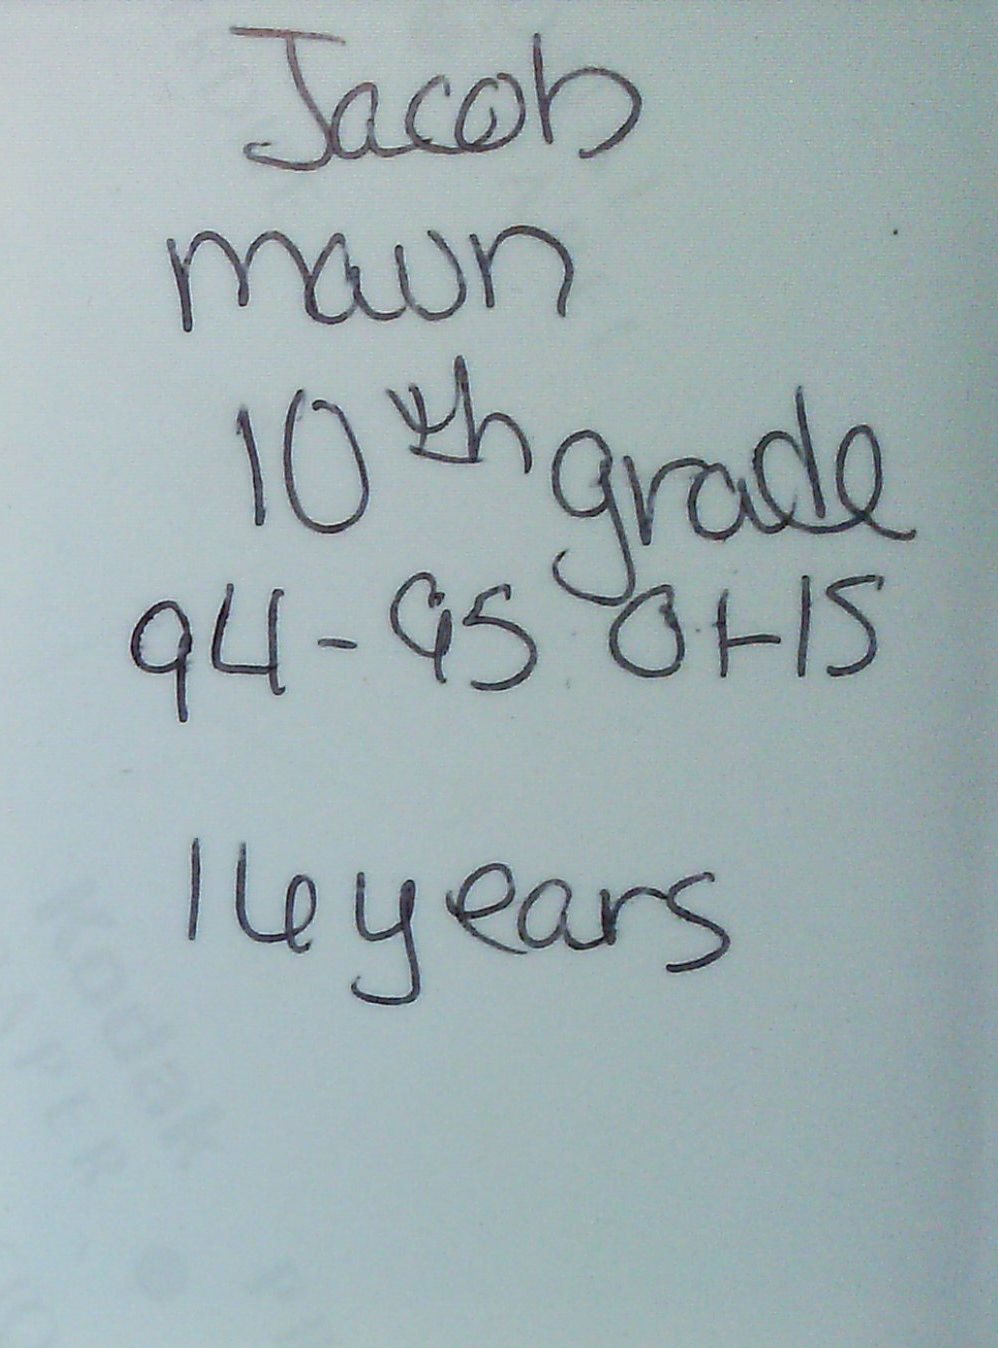 Jacob
maun
10th grade
94-95 OHS
16 years
Kodak